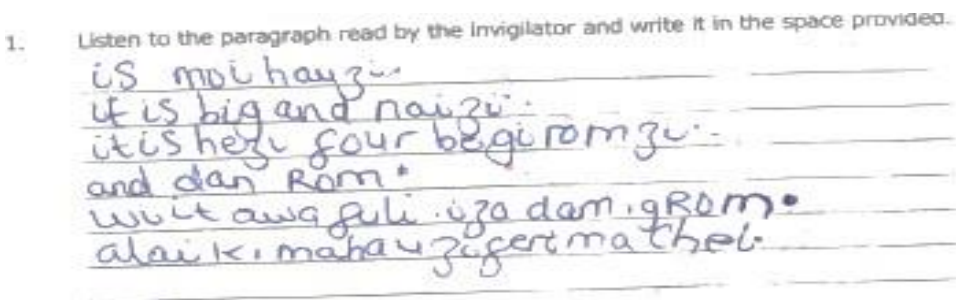 1. Listen to the paragraph read by the invigilator and write it in the space provided.
is moi hauzi..
it is big and naizi.
it is hezi four begi romzi.
and dan Rom.
wuit awa fuli izo dam.gRom.
alai ki mahauzi fert mathel.